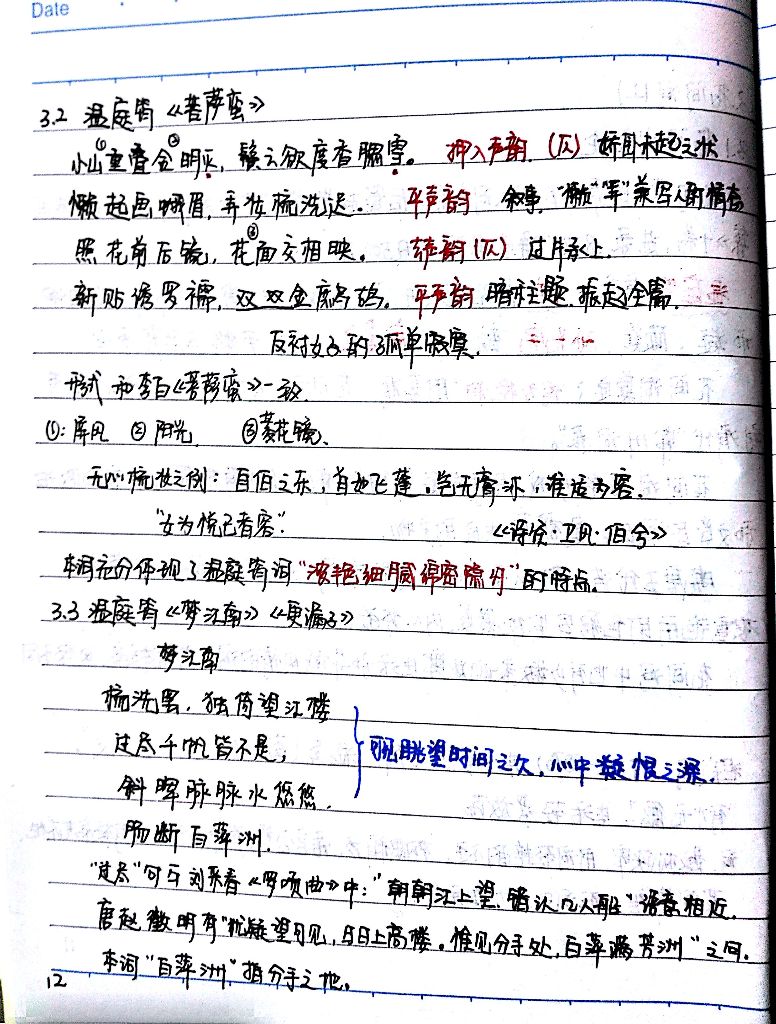 Date
3.2 温庭筠《菩萨蛮》
小山①重叠金②明灭，鬓云欲度香腮雪。 押入声韵（仄） 娇卧未起之状
懒起画蛾眉，弄妆梳洗迟。 平声韵 叙事，“懒”“弄”兼写人物情态
照花前后镜，花③面交相映。 转韵（仄） 过片承上.
新贴绣罗襦，双双金鹧鸪。 平声韵 暗扣主题.振起全篇.
反衬女子的孤单寂寞.
形式 和李白《菩萨蛮》一致.
①：屏风 ②阳光 ③菱花镜、
无心梳妆之例：自伯之东，首如飞蓬。岂无膏沐，谁适为容.
“女为悦己者容”. 《诗经·卫风·伯兮》
本词充分体现了温庭筠词“浓艳细腻绵密隐约”的特点。
3.3 温庭筠《梦江南》《更漏子》
梦江南
梳洗罢，独倚望江楼
过尽千帆皆不是，
斜晖脉脉水悠悠.
可见眺望时间之久，心中疑恨之深.
肠断白萍洲.
“过尽”句与刘采春《罗唝曲》中：“朝朝江上望，错认几人船”语意相近.
唐赵徵明有“犹疑望可见，日日上高楼。惟见分手处，白萍满芳洲”之句.
本词“白萍洲”指分手之地。
12